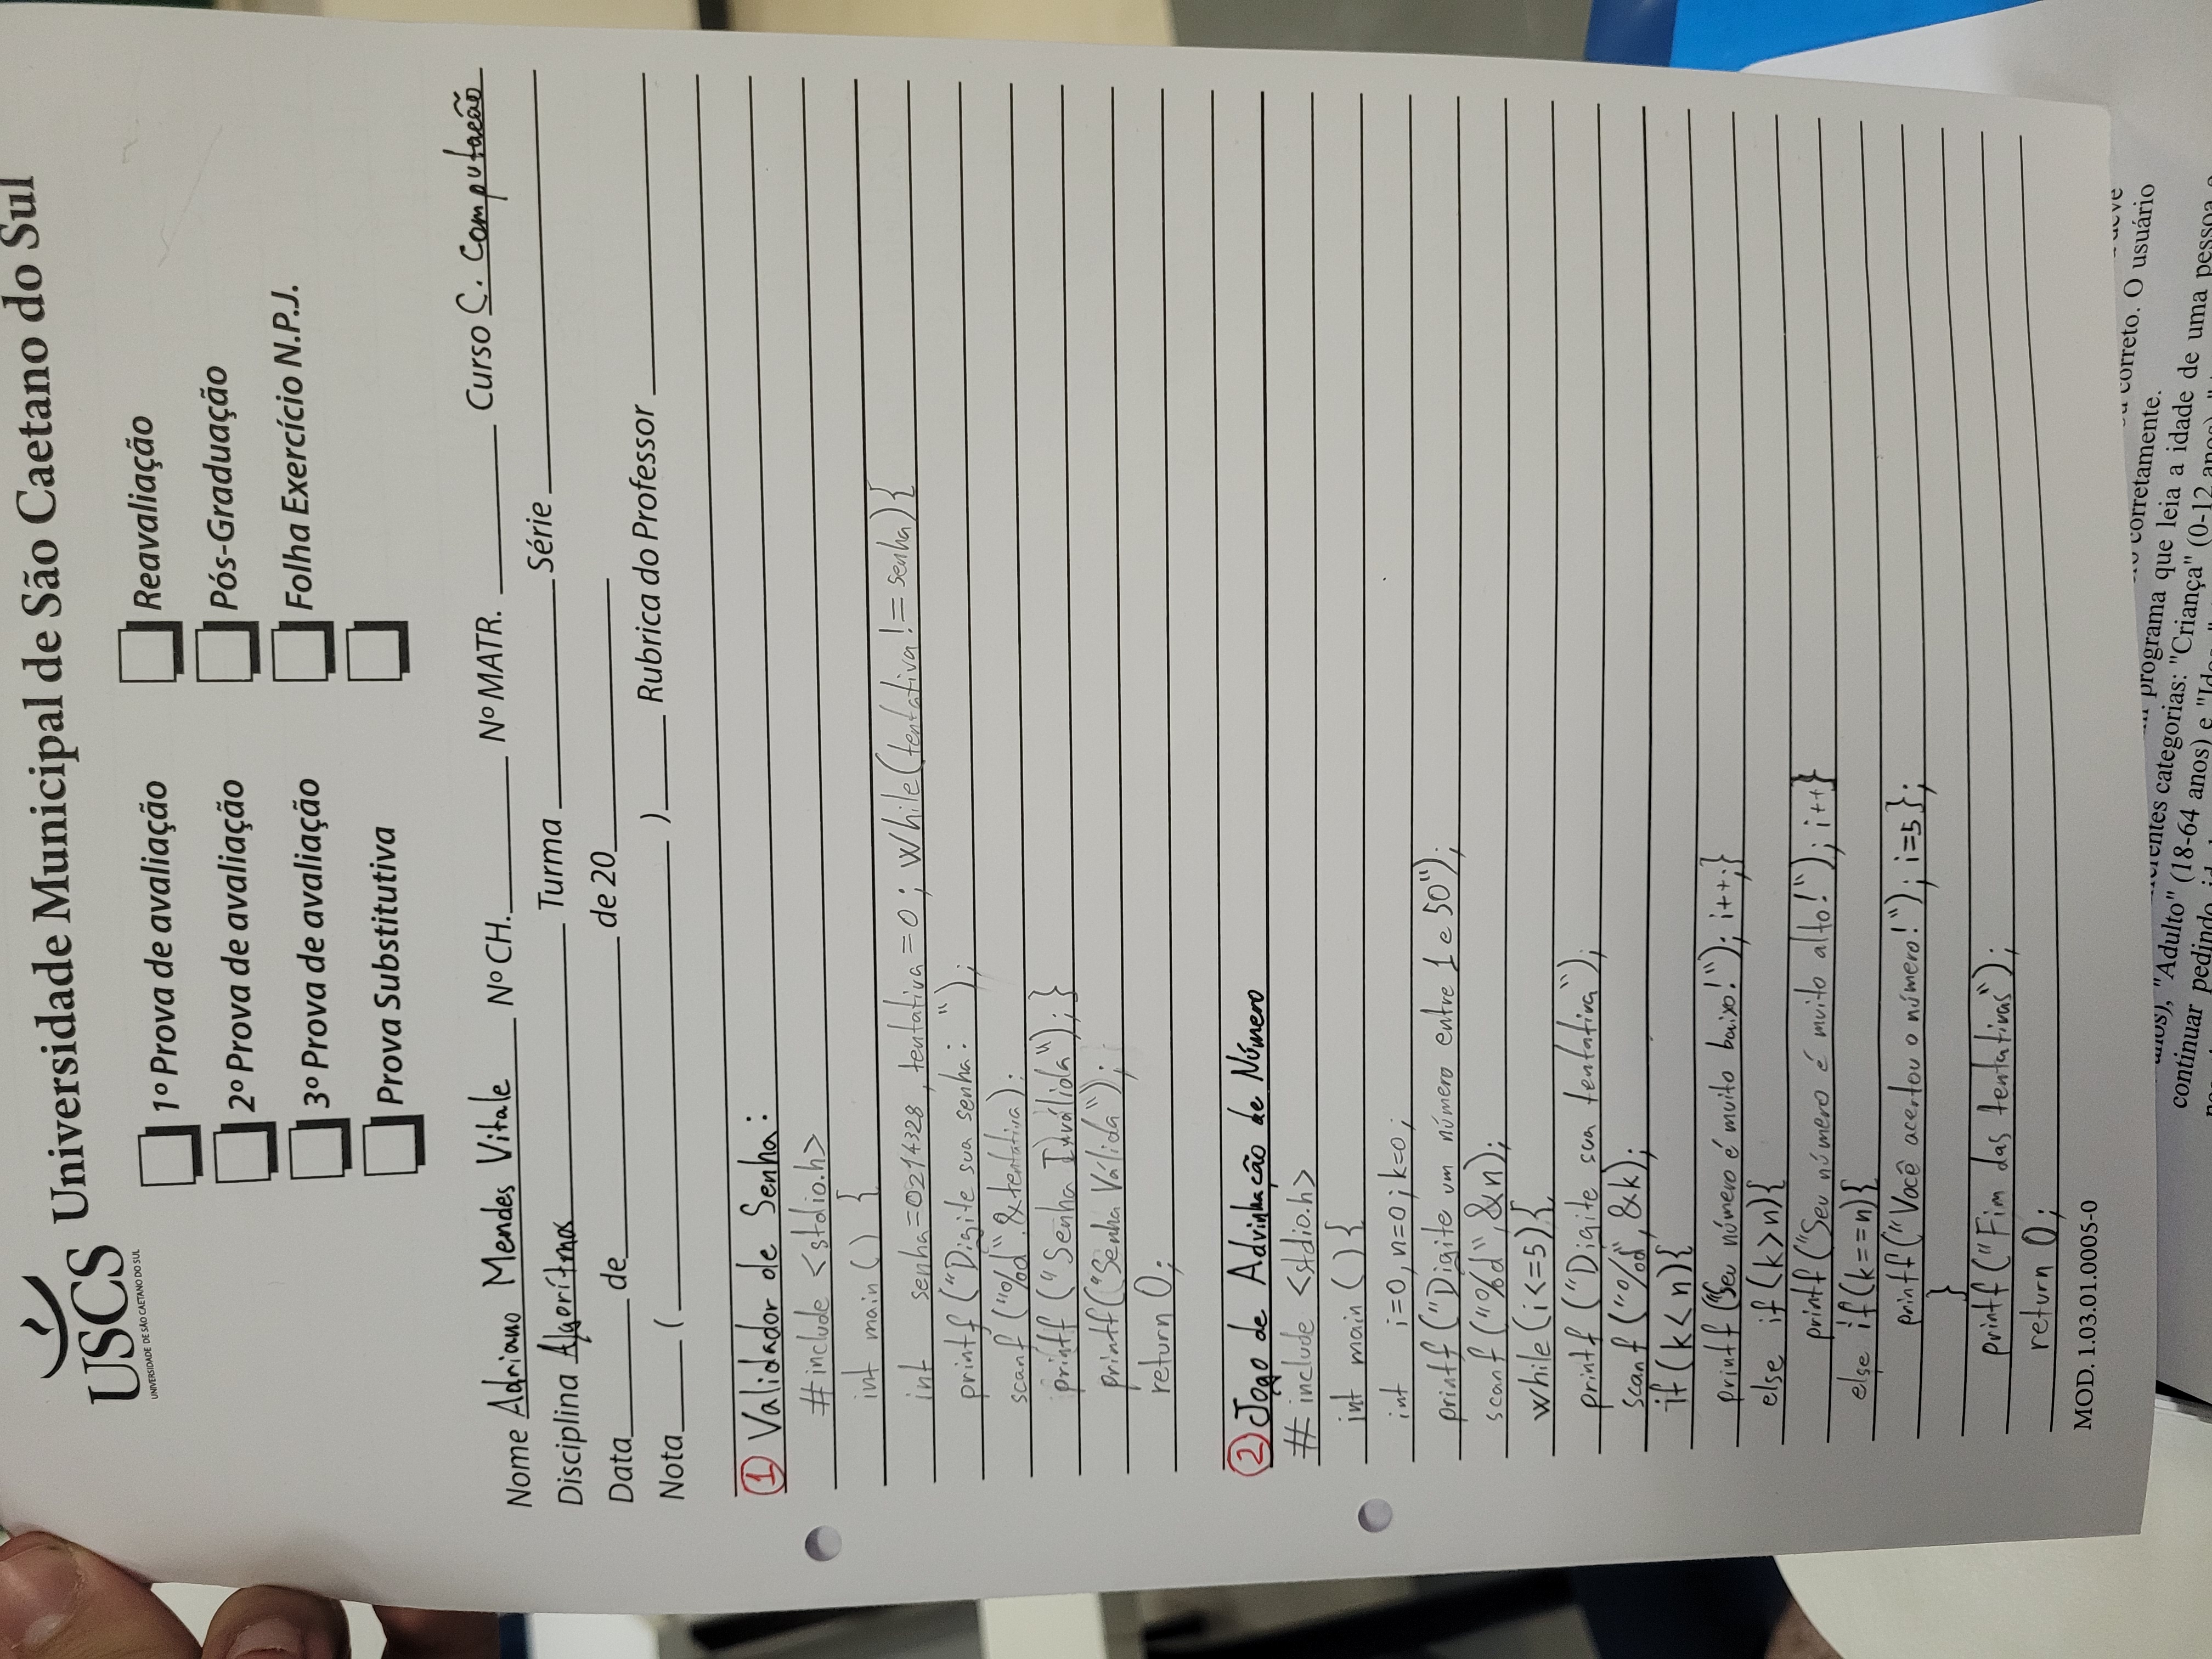 USCS
UNIVERSIDADE DE SÃO CAETANO DO SUL
Universidade Municipal de São Caetano do Sul
1º Prova de avaliação
2º Prova de avaliação
3º Prova de avaliação
Prova Substitutiva
Reavaliação
Pós-Graduação
Folha Exercício N.P.J.
Nome Adriano Mendes Vitale Nº CH. Nº MATR. Curso C. Computacão
Disciplina Algorítmos Turma Série
Data de de 20
Nota ( ) Rubrica do Professor
1 Validador de Senha:
#include <stdio.h>
int main() {
int senha=0214328, tentativa=0; While(tentativa != senha){
printf ("Digite sua senha: ");
scanf ("%d", &tentativa);
printf ("Senha Inválida"); }
printf("Senha Válida");
return 0;
2 Jogo de Advinhacão de Número
# include <stdio.h>
int main () {
int i=0, n=0; k=0;
printf ("Digite um número entre 1 e 50");
scanf ("%d", &n);
while (i<=5){
printf ("Digite sua tentativa");
scanf ("%d", &k);
if (k < n){
printf ("Seu número é muito baixo!"); i++;}
else if (k>n){
printf ("Seu número é muito alto!"); i++}
else if(k==n){
printf("Você acertou o número!"); i=5};
}
printf ("Fim das tentativas");
return 0;
MOD. 1.03.01.0005-0
correto. O usuário
corretamente.
programa que leia a idade de uma pessoa e
categorias: "Criança" (0-12
"Adulto" (18-64 anos) e
continuar pedindo